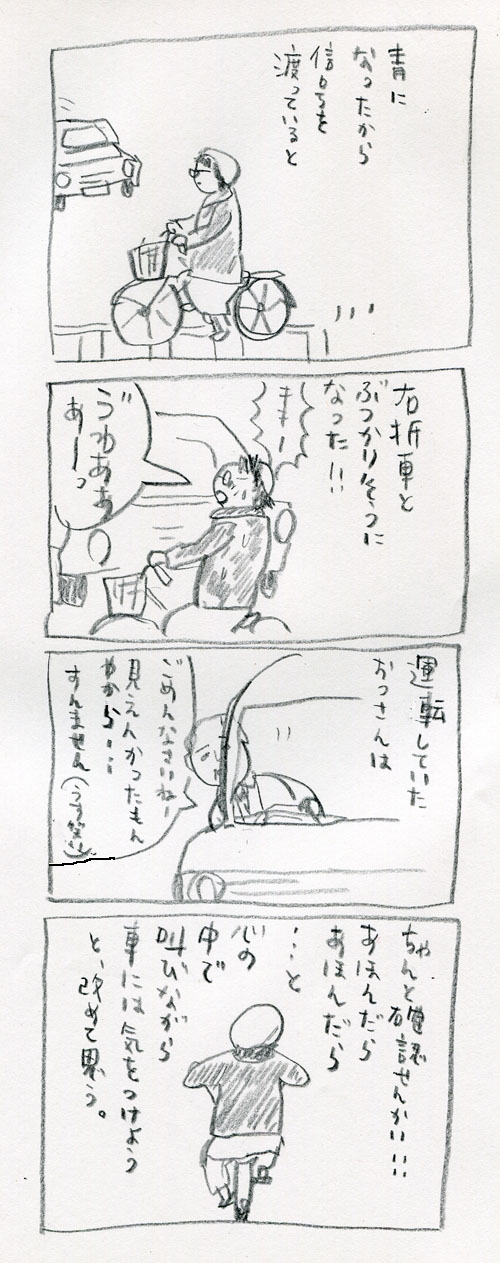 青に
なったから
信号を
渡っていると
右折車と
ぶつかりそうに
なった!!
キキー
うゎああ
あーっ
運転していた
おっさんは
ごめんなさいねー
見えんかったもん
やから…
すんません(うす笑い)
ちゃんと確認せんかい!!!
あほんだら
あほんだら
…と
心の
中で
叫びながら
車には気をつけよう
と、改めて思う。